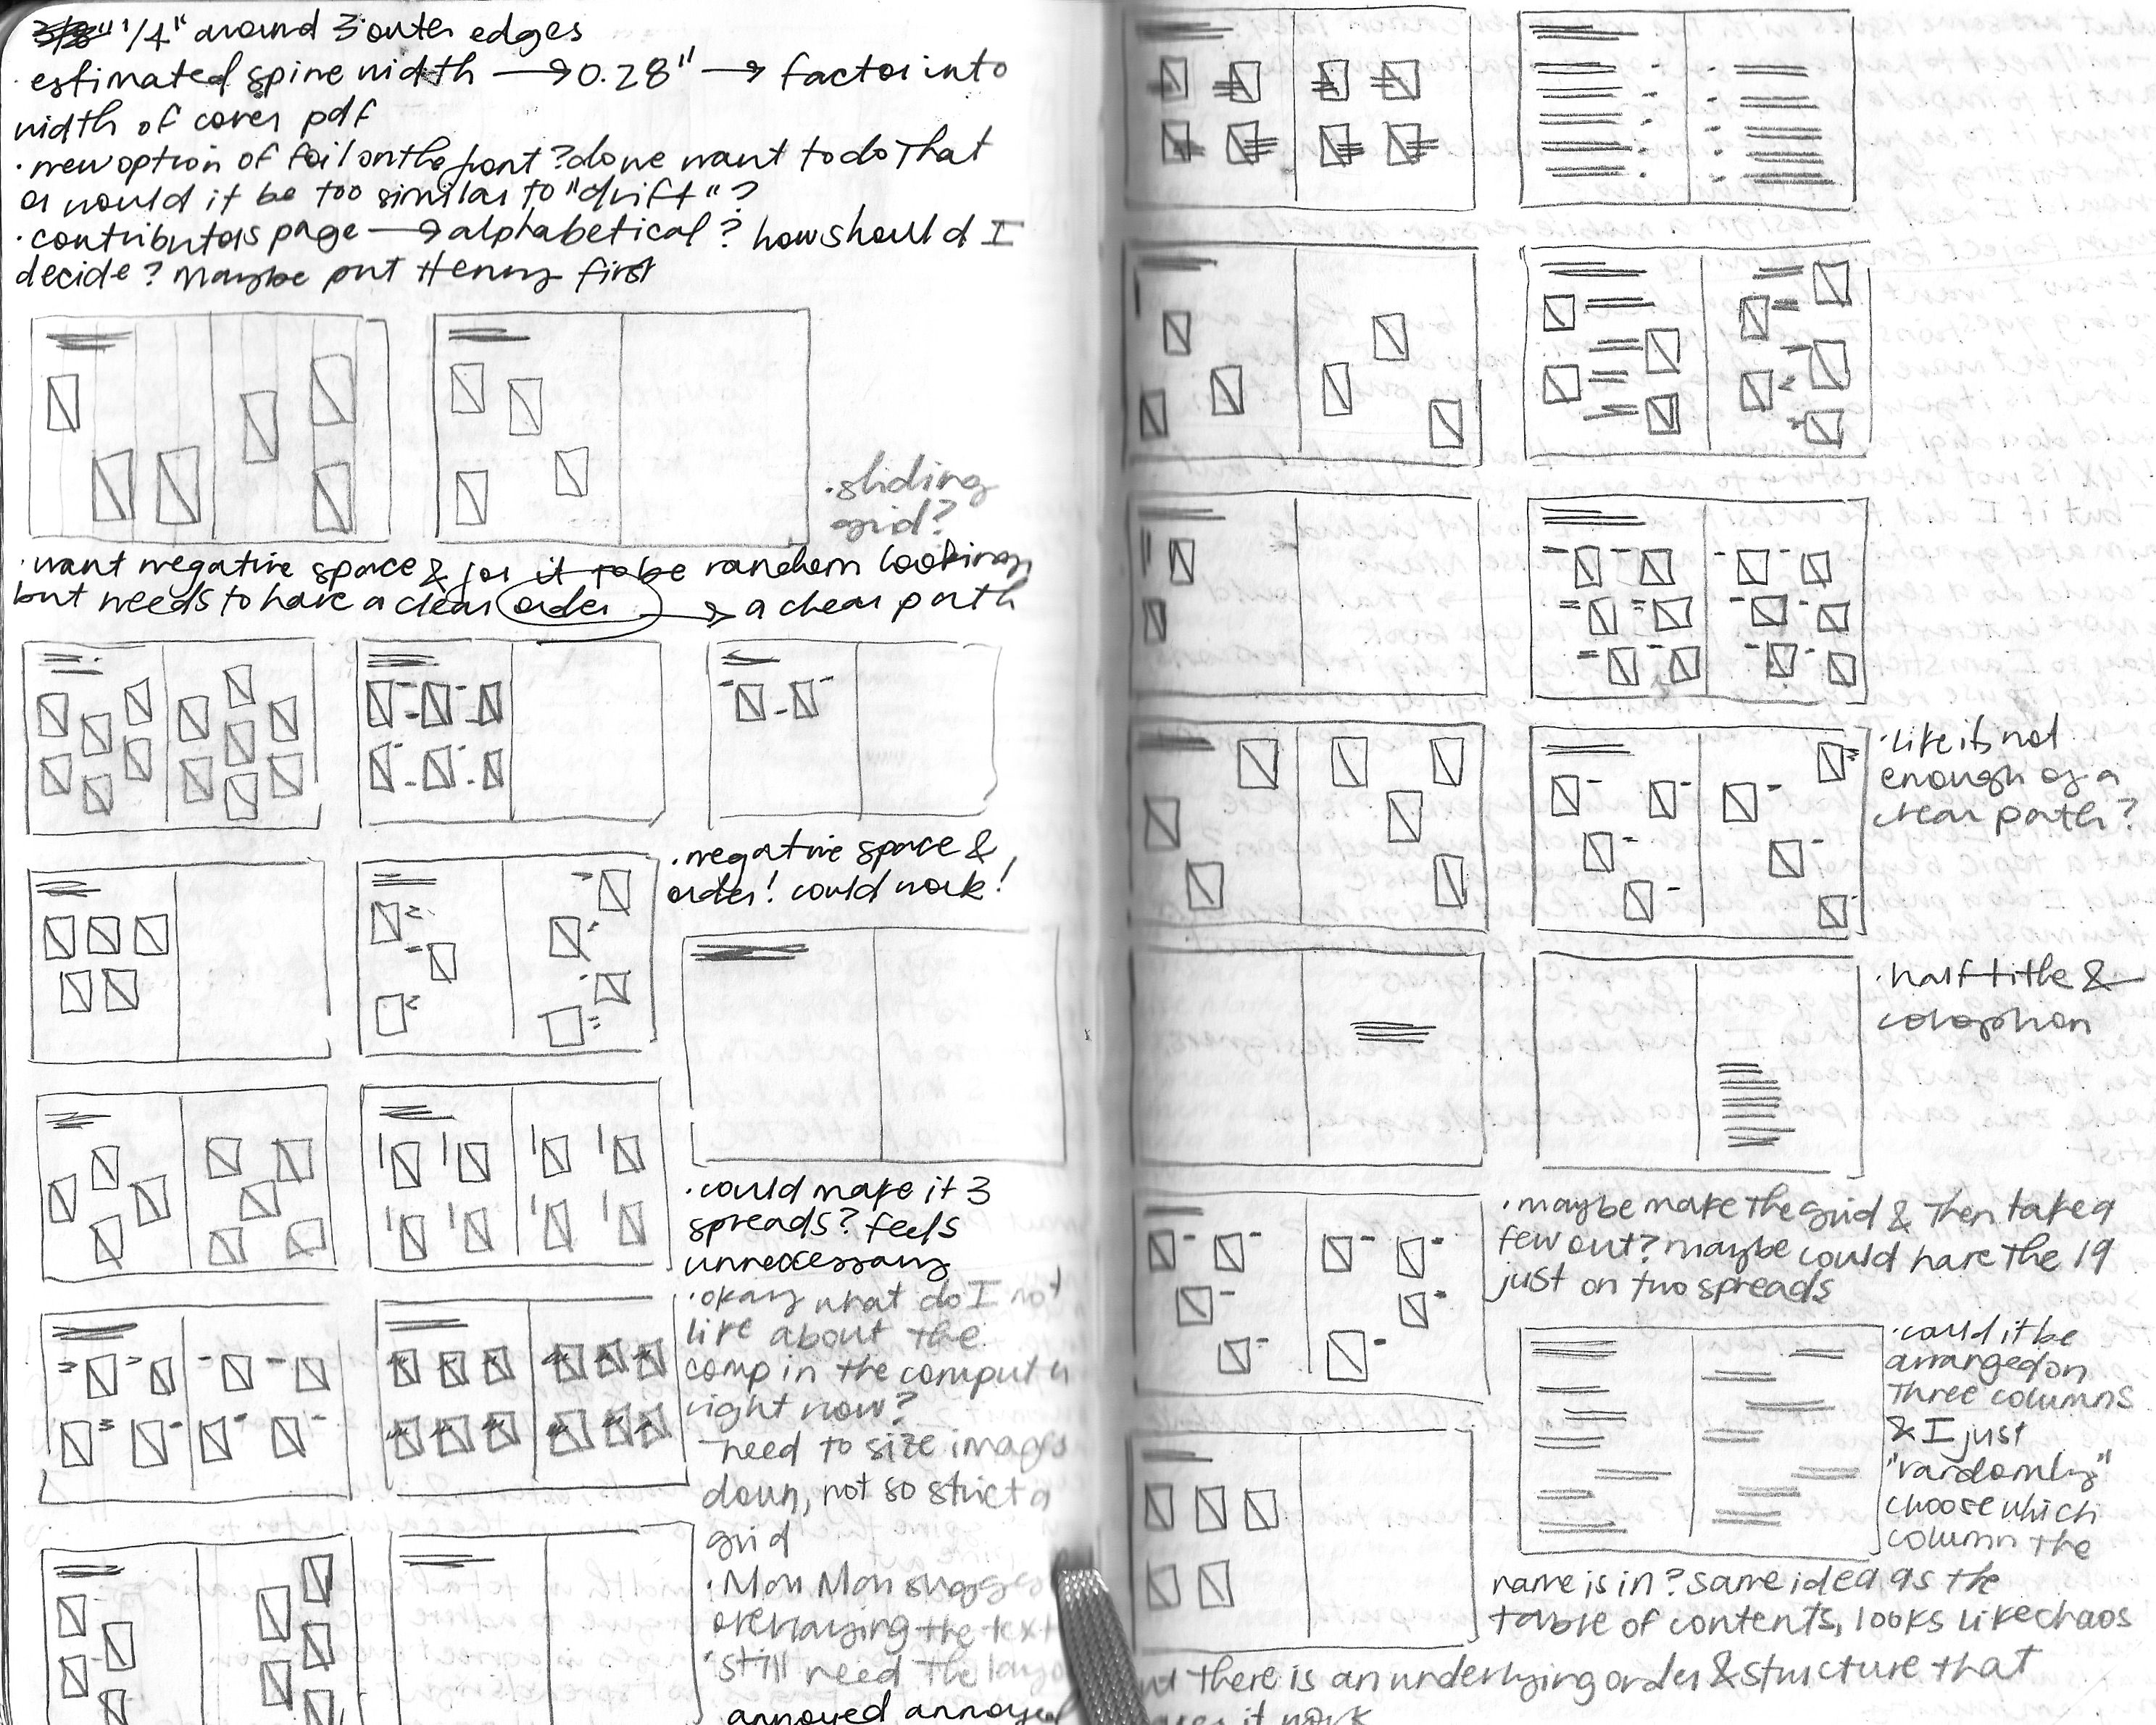 3/8" 1/4" around 3 outer edges
· estimated spine width → 0.28" → factor into
width of cover pdf
· new option of foil on the front? do we want to do that
or would it be too similar to "drift"?
· contributors page → alphabetical? how should I
decide? Maybe put Henry first
· sliding
grid?
· want negative space & for it to be random looking
but needs to have a clear order → a clear path
· negative space &
order! could work!
· could make it 3
spreads? feels
unnecessary
· okay what do I not
like about the
comp in the computer
right now?
- need to size images
down, not so strict a
grid
· Mon Mon
overlaying the text
· still need the
annoyed annoyed
· like it, not
enough of a
clear path?
· half title &
colophon
· maybe make the grid & then take a
few out? maybe could have the 19
just on two spreads
· could it be
arranged on
three columns
& I just
"randomly"
choose which
column the
name is in? same idea as the
table of contents, looks like chaos
but there is an underlying order & structure that
it work